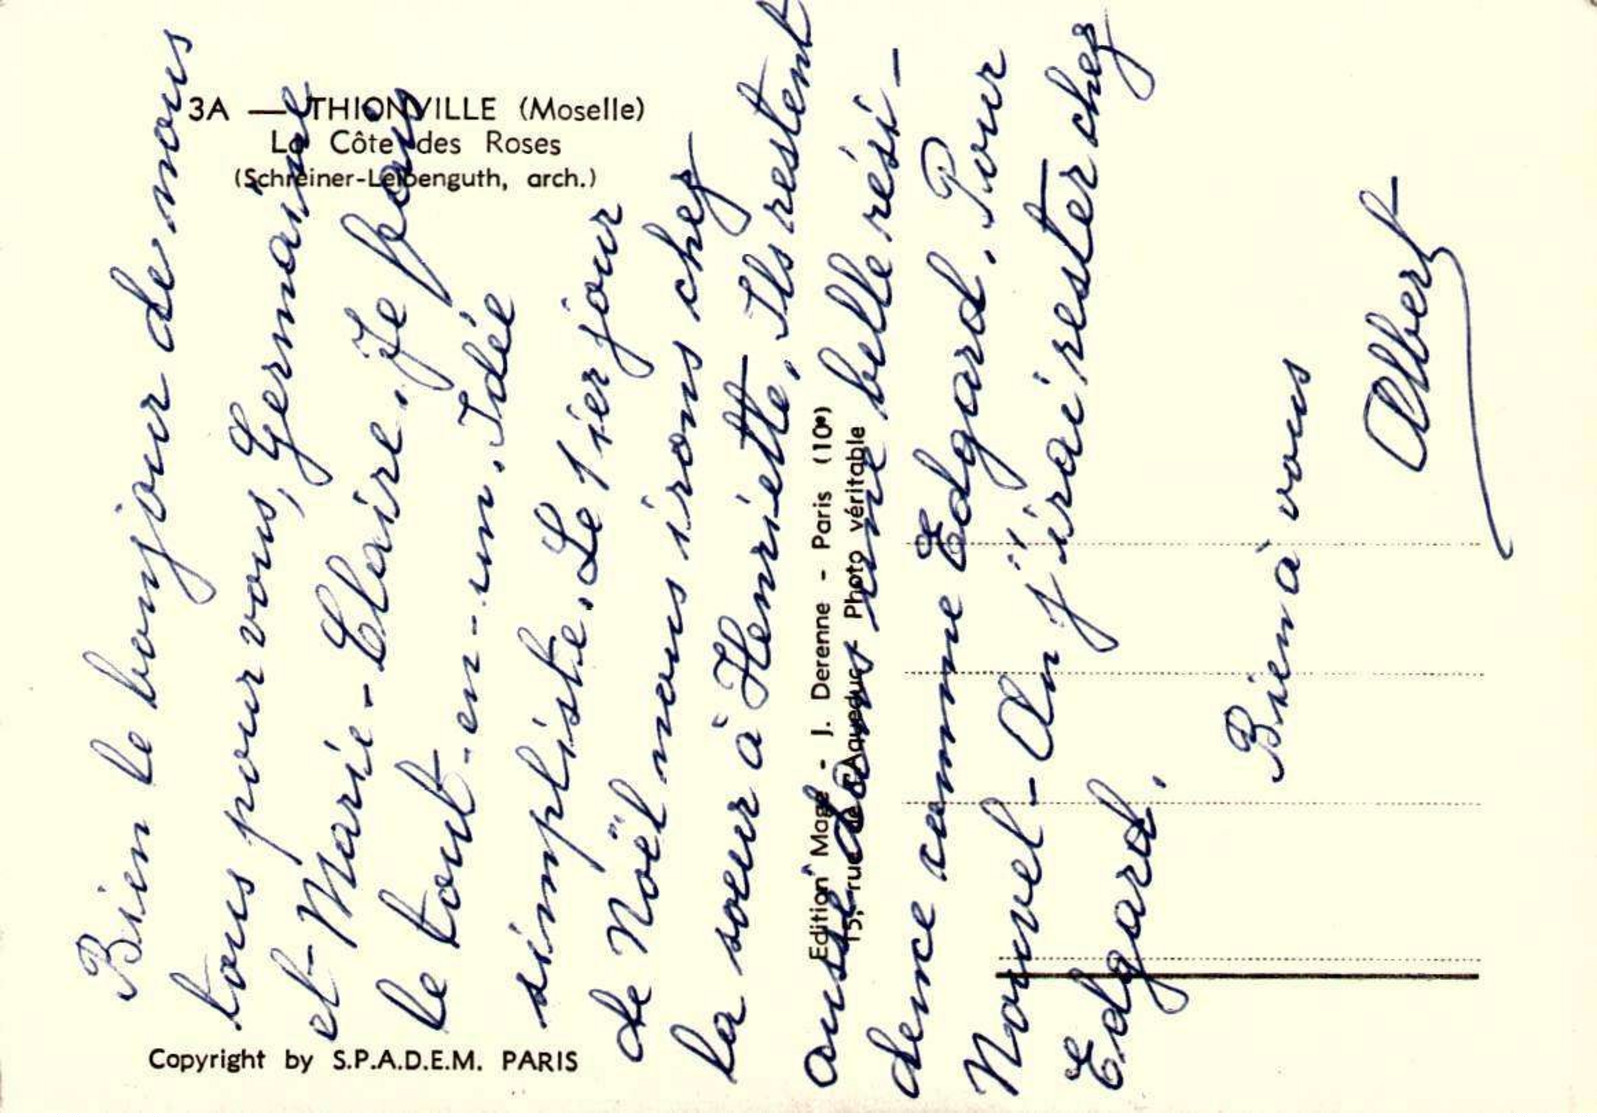 3A — THIONVILLE (Moselle)
La Côte des Roses
(Schreiner-Leibenguth, arch.)
Bien le bonjour de nous
tous pour vous, Germaine
et Marie-Claire. Je fais
le tout-en-un. Idée
simpliste. Le 1ier jour
de Noël nous irons chez
la sœur à Henriette. Ils restent
aussi dans une belle rési-
dence comme Edgard. Pour
Nouvel-An j'irai rester chez
Edgard.
Bien à vous
Albert
Edition Mage - J. Derenne - Paris (10e)
15, rue de l'Aqueduc - Photo véritable
Copyright by S.P.A.D.E.M. PARIS